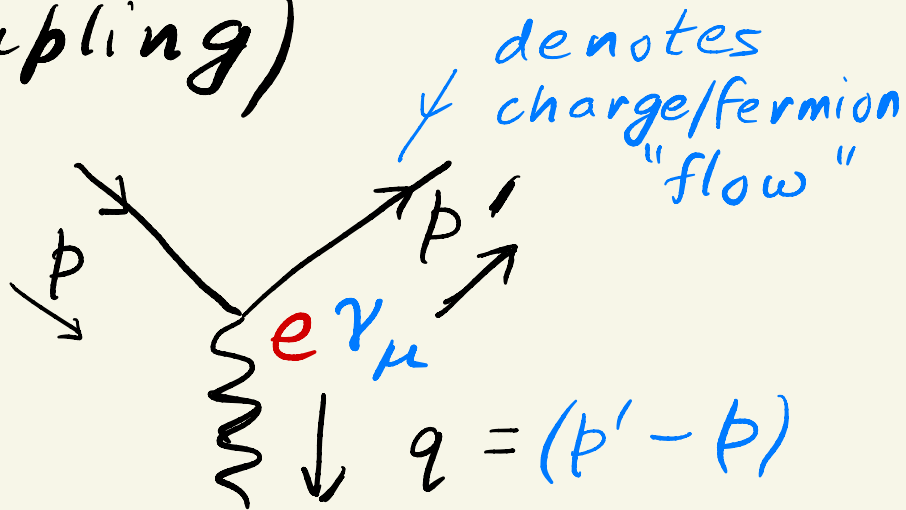 pling)
denotes
charge/fermion
"flow"
p
p'
e γμ
q = (p' - p)